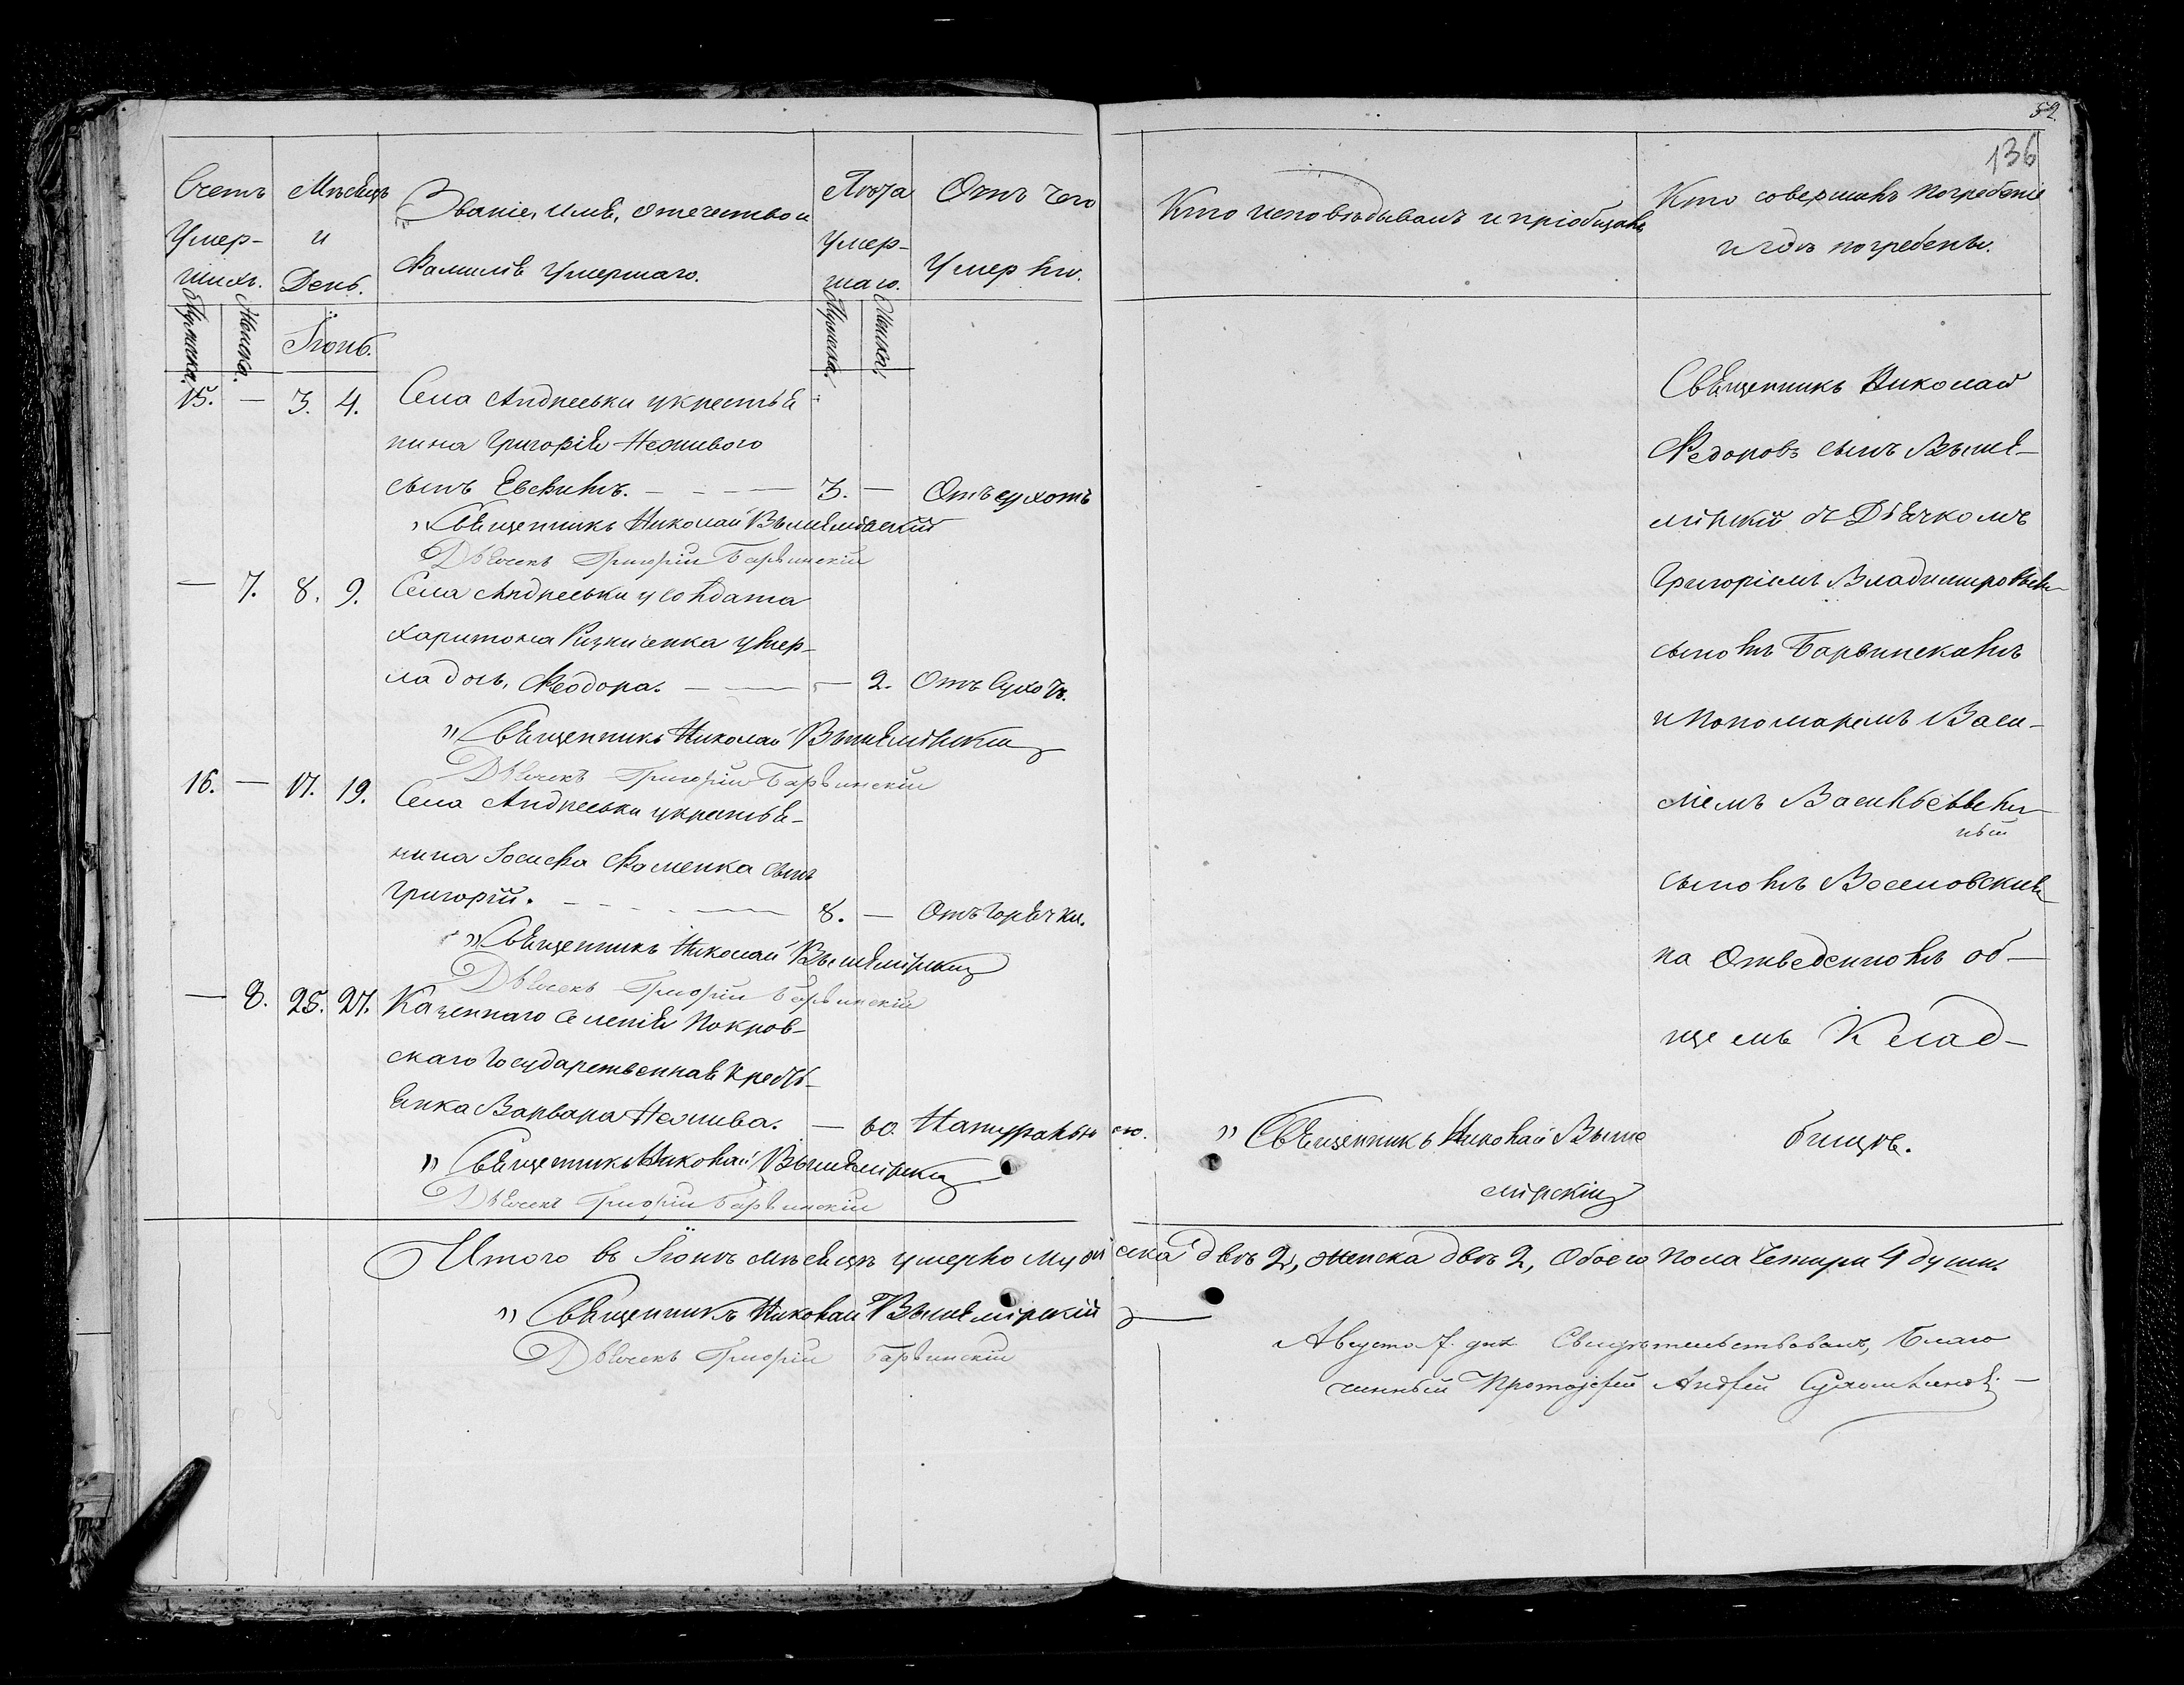 52
136
Счетъ
Умер-
шихъ.
Мѣсяцъ
и
День.
Званіе, имя, отечество и
Фамилія умершаго.
Лѣта
умер-
шаго.
Отъ чего
умерли.
Кто исповѣдывалъ и пріобщалъ
Кто совершилъ погребеніе
и гдѣ погребены.
Мужеска.
Женска.
Іюнь.
Мужеска.
Женска.
15. — 3. 4. Села Андреевки у крестья
нина Григорія Нежывого
сынъ Евсѣй. — 3. — Отъ сухотъ
Священникъ Николай Вышемірскій
Дьячекъ Григорій Барвинскій
— 7. 8. 9. Села Андреевки у солдата
Харитона Ризниченка умер-
ла дочь, Феодора. — — 2. Отъ Сухотъ.
Священникъ Николай Вышемірскій
Дьячекъ Григорій Барвинскій
16. — 17. 19. Села Андреевки у крестья-
нина Іосифа Фоменка сынъ
Григорій. — 8. — Отъ горячки.
Священникъ Николай Вышемірскій
Дьячекъ Григорій Барвинскій
— 8. 25. 27. Казеннаго селенія Покров-
скаго Государственная Кресть-
янка Варвара Нежива. — 60. Натуральною.
Священникъ Николай Вышемірскій
Дьячекъ Григорій Барвинскій
Священникъ Николай Выше
мірскій
Священникъ Николай
Федоровъ сынъ Выше-
мірскій съ Дьячкомъ
Григоріемъ Владимировымъ
сыномъ Барвинскимъ
и Пономаремъ Васи-
ліемъ Васильевымъ
сыномъ
на Отведенномъ об-
щемъ Клад-
бищѣ.
Итого въ Іюнѣ мѣсяцѣ умерло мужеска двѣ 2, женска двѣ 2, Обоего пола Четыри 4 души.
Священникъ Николай Вышемірскій
Дьячекъ Григорій Барвинскій
Августа 7. дня Свидѣтельствовалъ, Благо
чинный Протоіерей Андрей